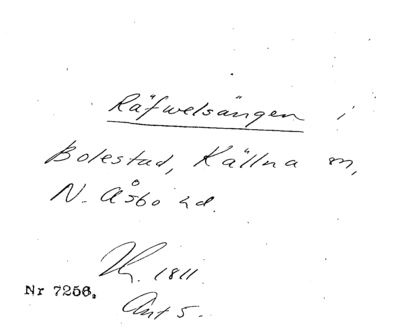 Räfwelsängen i
Bolestad, Källna sn,
N. Åsbo hd.
Th. 1811.
Nr 7256.
Ant 5.